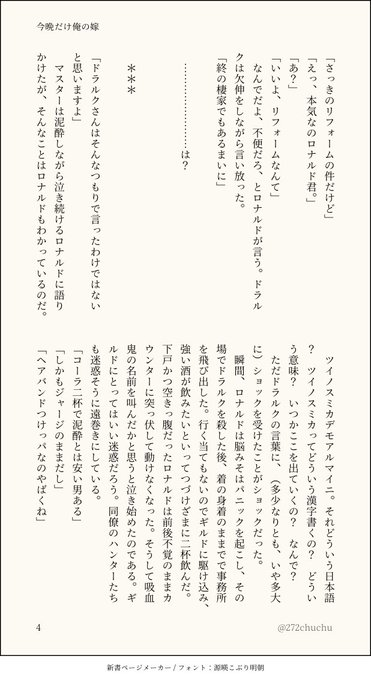 今晩だけ俺の嫁
「さっきのリフォームの件だけど」
「えっ、本気なのロナルド君。」
「あ？」
「いいよ、リフォームなんて」
　なんでだよ、不便だろ、とロナルドが言う。ドラル
クは欠伸をしながら言い放った。
「終の棲家でもあるまいに」
…………………は？
＊＊＊
「ドラルクさんはそんなつもりで言ったわけではない
と思いますよ」
　マスターは泥酔しながら泣き続けるロナルドに語り
かけたが、そんなことはロナルドもわかっているのだ。
　ツイノスミカデモアルマイニ。それどういう日本語
？　ツイノスミカってどういう漢字書くの？　どうい
う意味？　いつかここを出ていくの？　なんで？
　ただドラルクの言葉に、（多少なりとも、いや多大
に）ショックを受けたことがショックだった。
　瞬間、ロナルドは脳みそはパニックを起こし、その
場でドラルクを殺した後、着の身着のままでで事務所
を飛び出した。行く当てもないのでギルドに駆け込み、
強い酒が飲みたいといってつづけざまに二杯飲んだ。
下戸かつ空きっ腹だったロナルドは前後不覚のままカ
ウンターに突っ伏して動けなくなった。そうして吸血
鬼の名前を叫んだかと思うと泣き始めたのである。ギ
ルドにとってはいい迷惑だろう。同僚のハンターたち
も迷惑そうに遠巻きにしている。
「コーラ二杯で泥酔とは安い男ある」
「しかもジャージのままだし」
「ヘアバンドつけっパなのやばくね」
4
@272chuchu
新書ページメーカー / フォント：源暎こぶり明朝